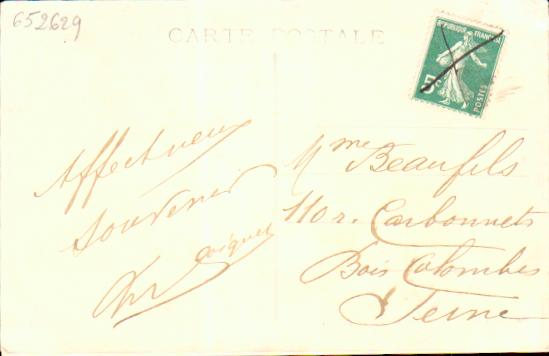 652629
CARTE POSTALE
RÉPUBLIQUE FRANÇAISE
5c
POSTES
Affectueux
souvenir
Mme Beaufils
110 r. Carbonnets
Bois Colombes
Seine